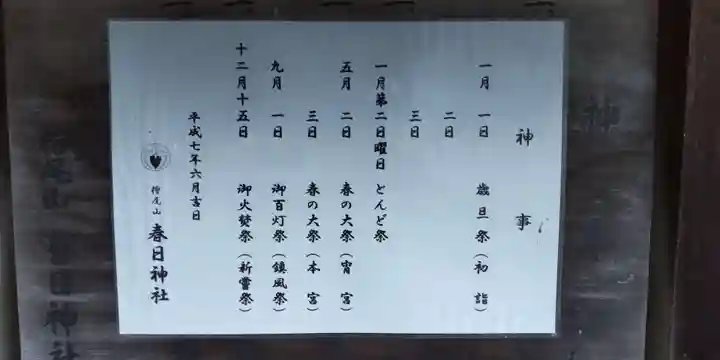 神事
一月 一日 歳旦祭(初詣)
二日
三日
一月第二日曜日 とんど祭
五月 二日 春の大祭(宵宮)
三日 春の大祭(本宮)
九月 一日 御百灯祭(鎮風祭)
十二月十五日 御火焚祭(新嘗祭)
平成七年六月吉日
樫尾山 春日神社